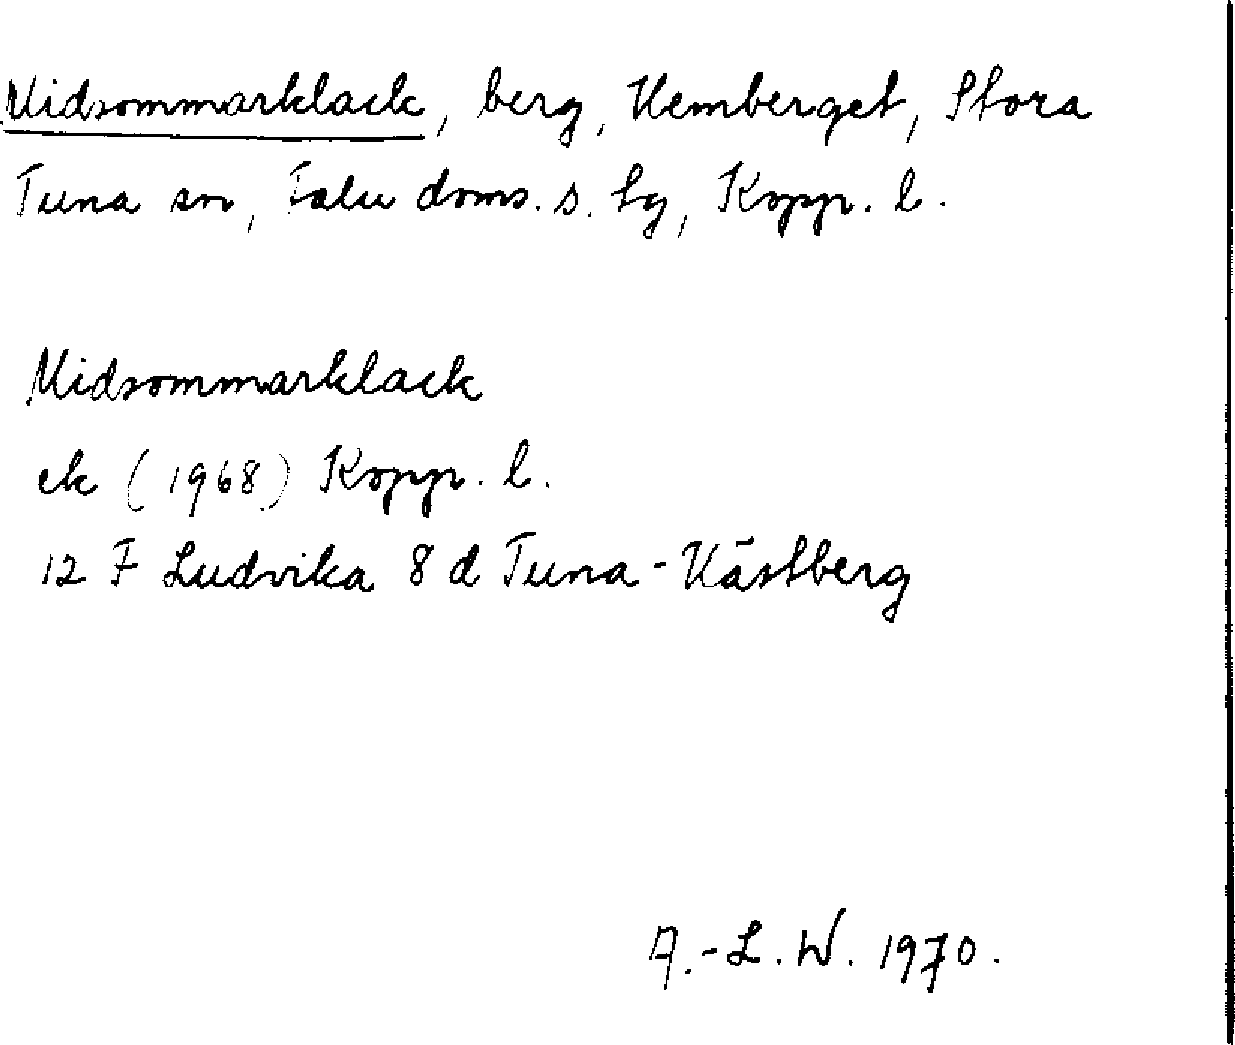 Midsommarklack, berg, Kemberget, Stora
Tuna sn, Falu doms. s. tg, Kopp. l.
Midsommarklack
ek (1968) Kopp. l.
12 F Ludvika 8 d Tuna-Hästberg
A.-L.W. 1970.